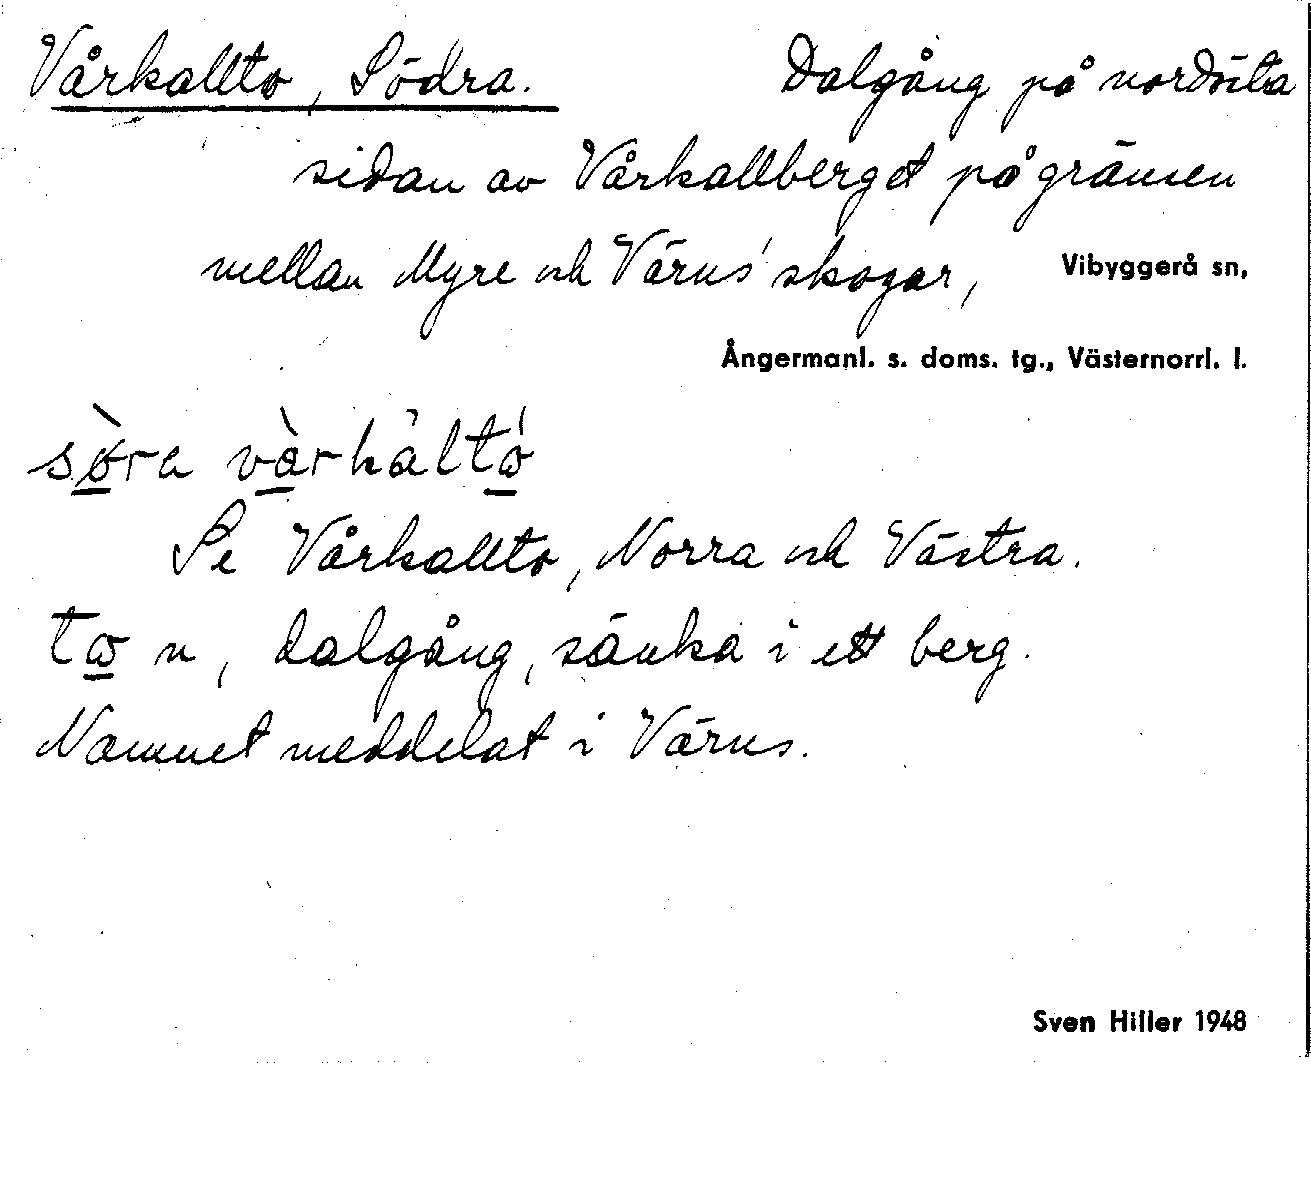 Vårkallto, Södra. Dalgång på nordöstra
sidan av Vårkallberget på gränsen
mellan Myre och Värns' skogar, Vibyggerå sn,
Ångermanl. s. doms. tg., Västernorrl. l.
Se Vårkallto, Norra och Västra.
n, dalgång, sänka i ett berg.
Namnet meddelat i Värns.
Sven Hiller 1948